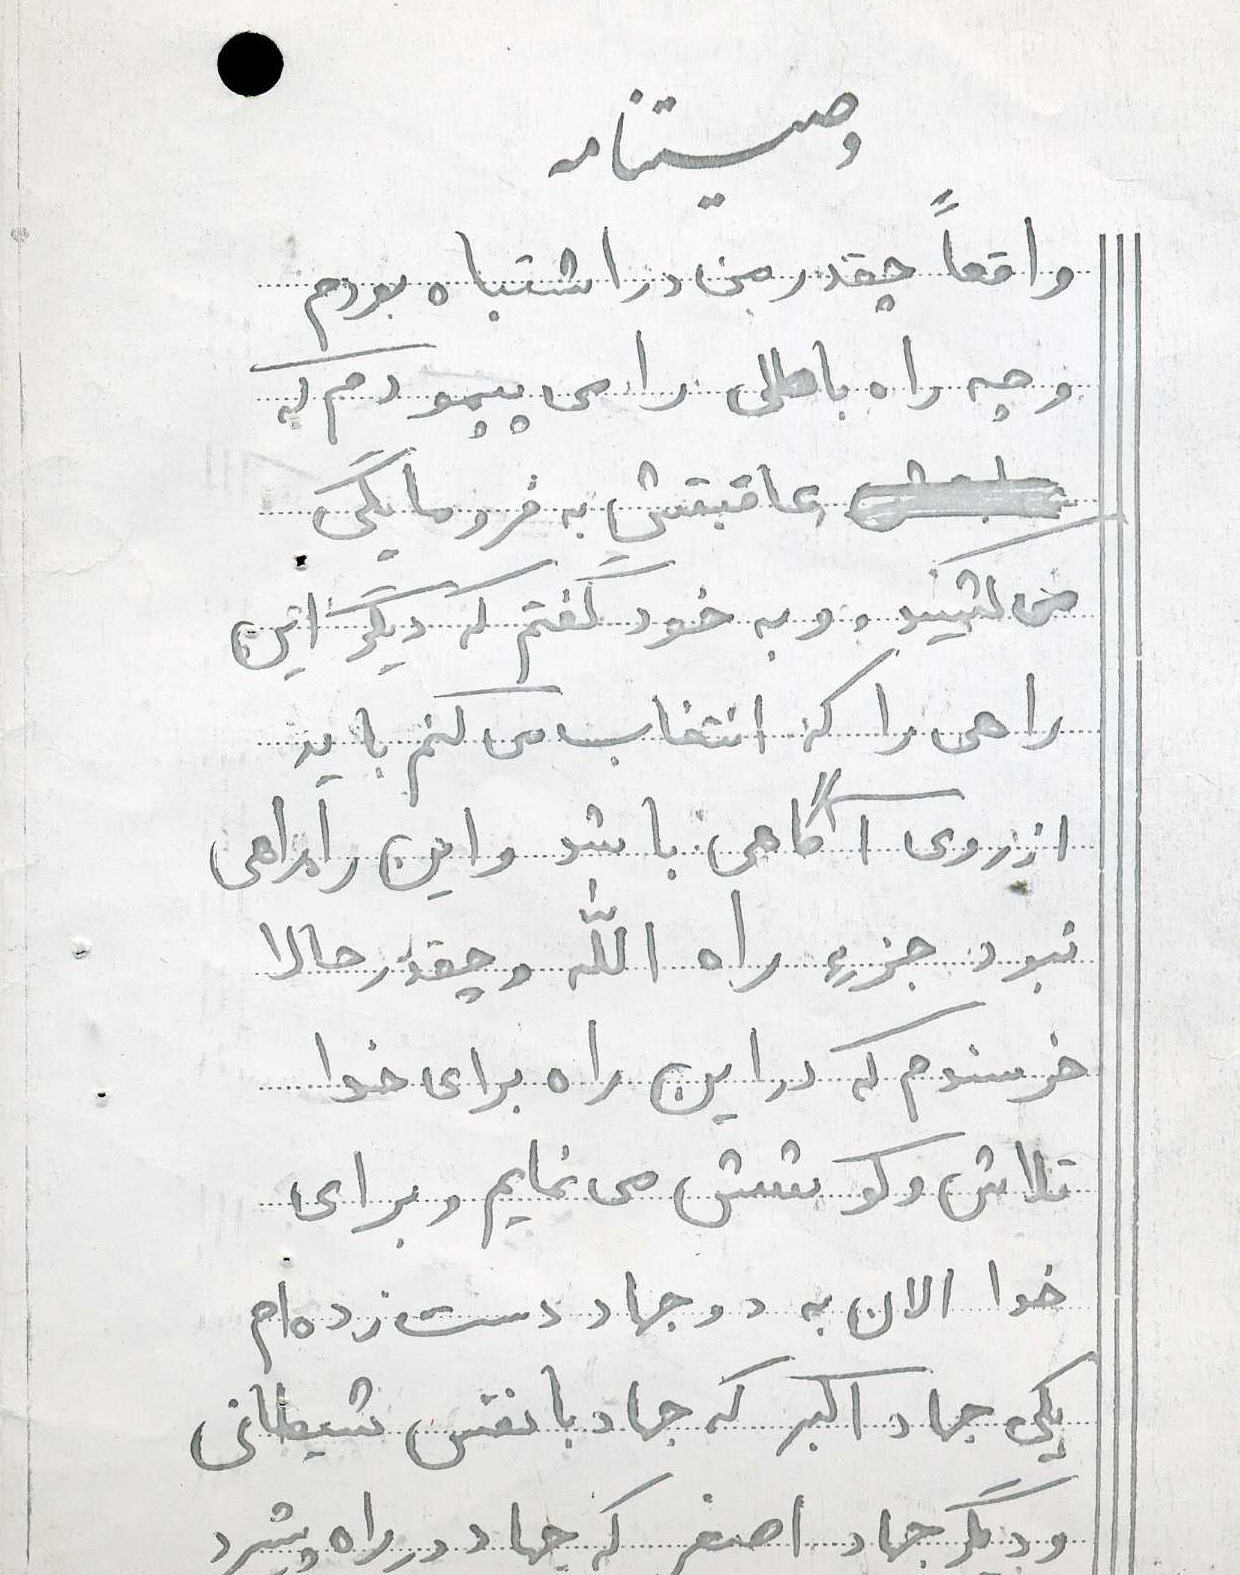 وصیتنامه
واقعاً چقدر من در اشتباه بودم
و چه راه باطلی را می پیمودم که
عاقبتش به فرومایگی
می کشید. و به خود گفتم که دیگر این
راهی را که انتخاب می کنم باید
از روی آگاهی باشد و این راه راهی
نبود جزء راه الله و چقدر حالا
خرسندم که در این راه برای خدا
تلاش و کوشش می نمایم و برای
خدا الان به دو جهاد دست زده ام
یکی جهاد اکبر که جهاد با نفس شیطانی
و دیگر جهاد اصغر که جهاد در راه